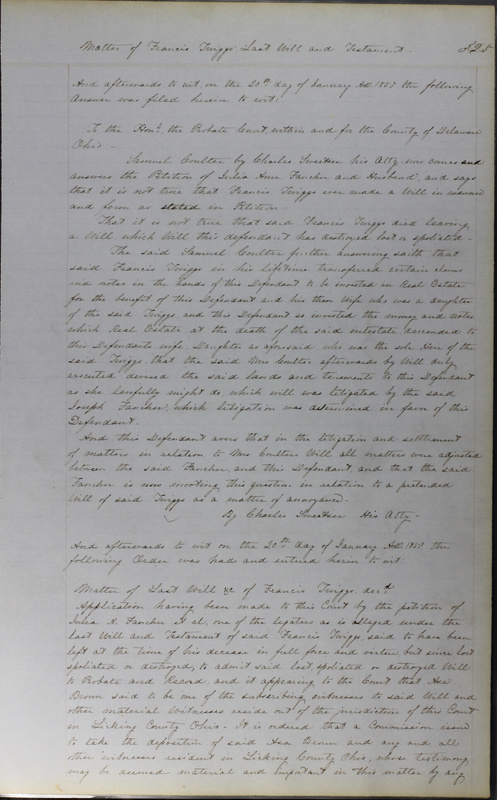 Matter of Francis Twiggs Last Will and Testament.
And afterwards to wit, on the 20th day of January AD. 1857 the following
Answer was filed herein to wit:
To the Honl. the Probate Court within and for the County of Delaware
Ohio -
Samuel Coulter by Charles Sweetser his Atty. now comes and
answers the Petition of Julia Ann Fancher and Husband, and says
that it is not true that Francis Twiggs ever made a Will in manner
and form as stated in Petition -
That it is not true that said Francis Twiggs died leaving
a Will, which Will this defendant has destroyed lost or spoliated -
The said Samuel Coulter further answering saith that
said Francis Twiggs in his lifetime transferred certain claims
and notes in the hands of this Defendant to be invested in Real Estate
for the benefit of this Defendant and his then Wife who was a daughter
of the said Twiggs, and this Defendant so invested the money and notes
which Real Estate at the death of the said intestate descended to
this Defendants wife, Daughter as aforesaid who was the sole Heir of the
said Twiggs, that the said Mrs Coulter afterwards by Will duly
executed devised the said lands and tenements to this Defendant
as she lawfully might do which will was litigated by the said
Joseph Fancher, which litigation was determined in favor of this
Defendant.
And this Defendant avers that in the litigation and settlement
of matters in relation to Mrs Coulters Will all matters were adjusted
between the said Fancher, and this Defendant, and that the said
Fancher is now mooting this question in relation to a pretended
Will of said Twiggs as a matter of annoyance -
By Charles Sweetser His Atty -
And afterwards to wit on the 20th day of January AD. 1857 the
following Order was had and entered herein to wit
Matter of Last Will &c of Francis Twiggs decd.
Application having been made to this Court by the petition of
Julia A. Fancher et al, one of the legatees as is alleged under the
Last Will and Testament of said Francis Twiggs said to have been
left at the time of his decease in full force and virtue but since lost
spoliated or destroyed, to admit said lost, spoliated or destroyed Will
to Probate and Record and it appearing to the Court that Asa
Brown said to be one of the subscribing witnesses to said Will and
other material Witnesses reside out of the jurisdiction of this Court
in Licking County Ohio - It is ordered that a Commission issue
to take the deposition of said Asa Brown and any and all
other witnesses resident in Licking County Ohio, whose testimony
may be deemed material and important in this matter by any